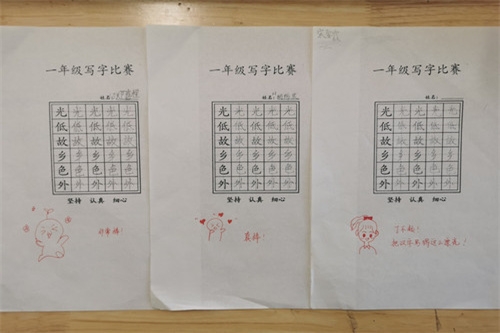 一年级写字比赛
姓名:
光光光光光
低低低低低
故故故故故
乡乡乡乡乡
色色色色色
外外外外外
坚持 认真 细心
非常棒!
一年级写字比赛
姓名:
光光光光光
低低低低低
故故故故故
乡乡乡乡乡
色色色色色
外外外外外
坚持 认真 细心
真棒!
一年级写字比赛
姓名:
光光光光光
低低低低低
故故故故故
乡乡乡乡乡
色色色色色
外外外外外
坚持 认真 细心
了不起!
把汉字写得这么漂亮!